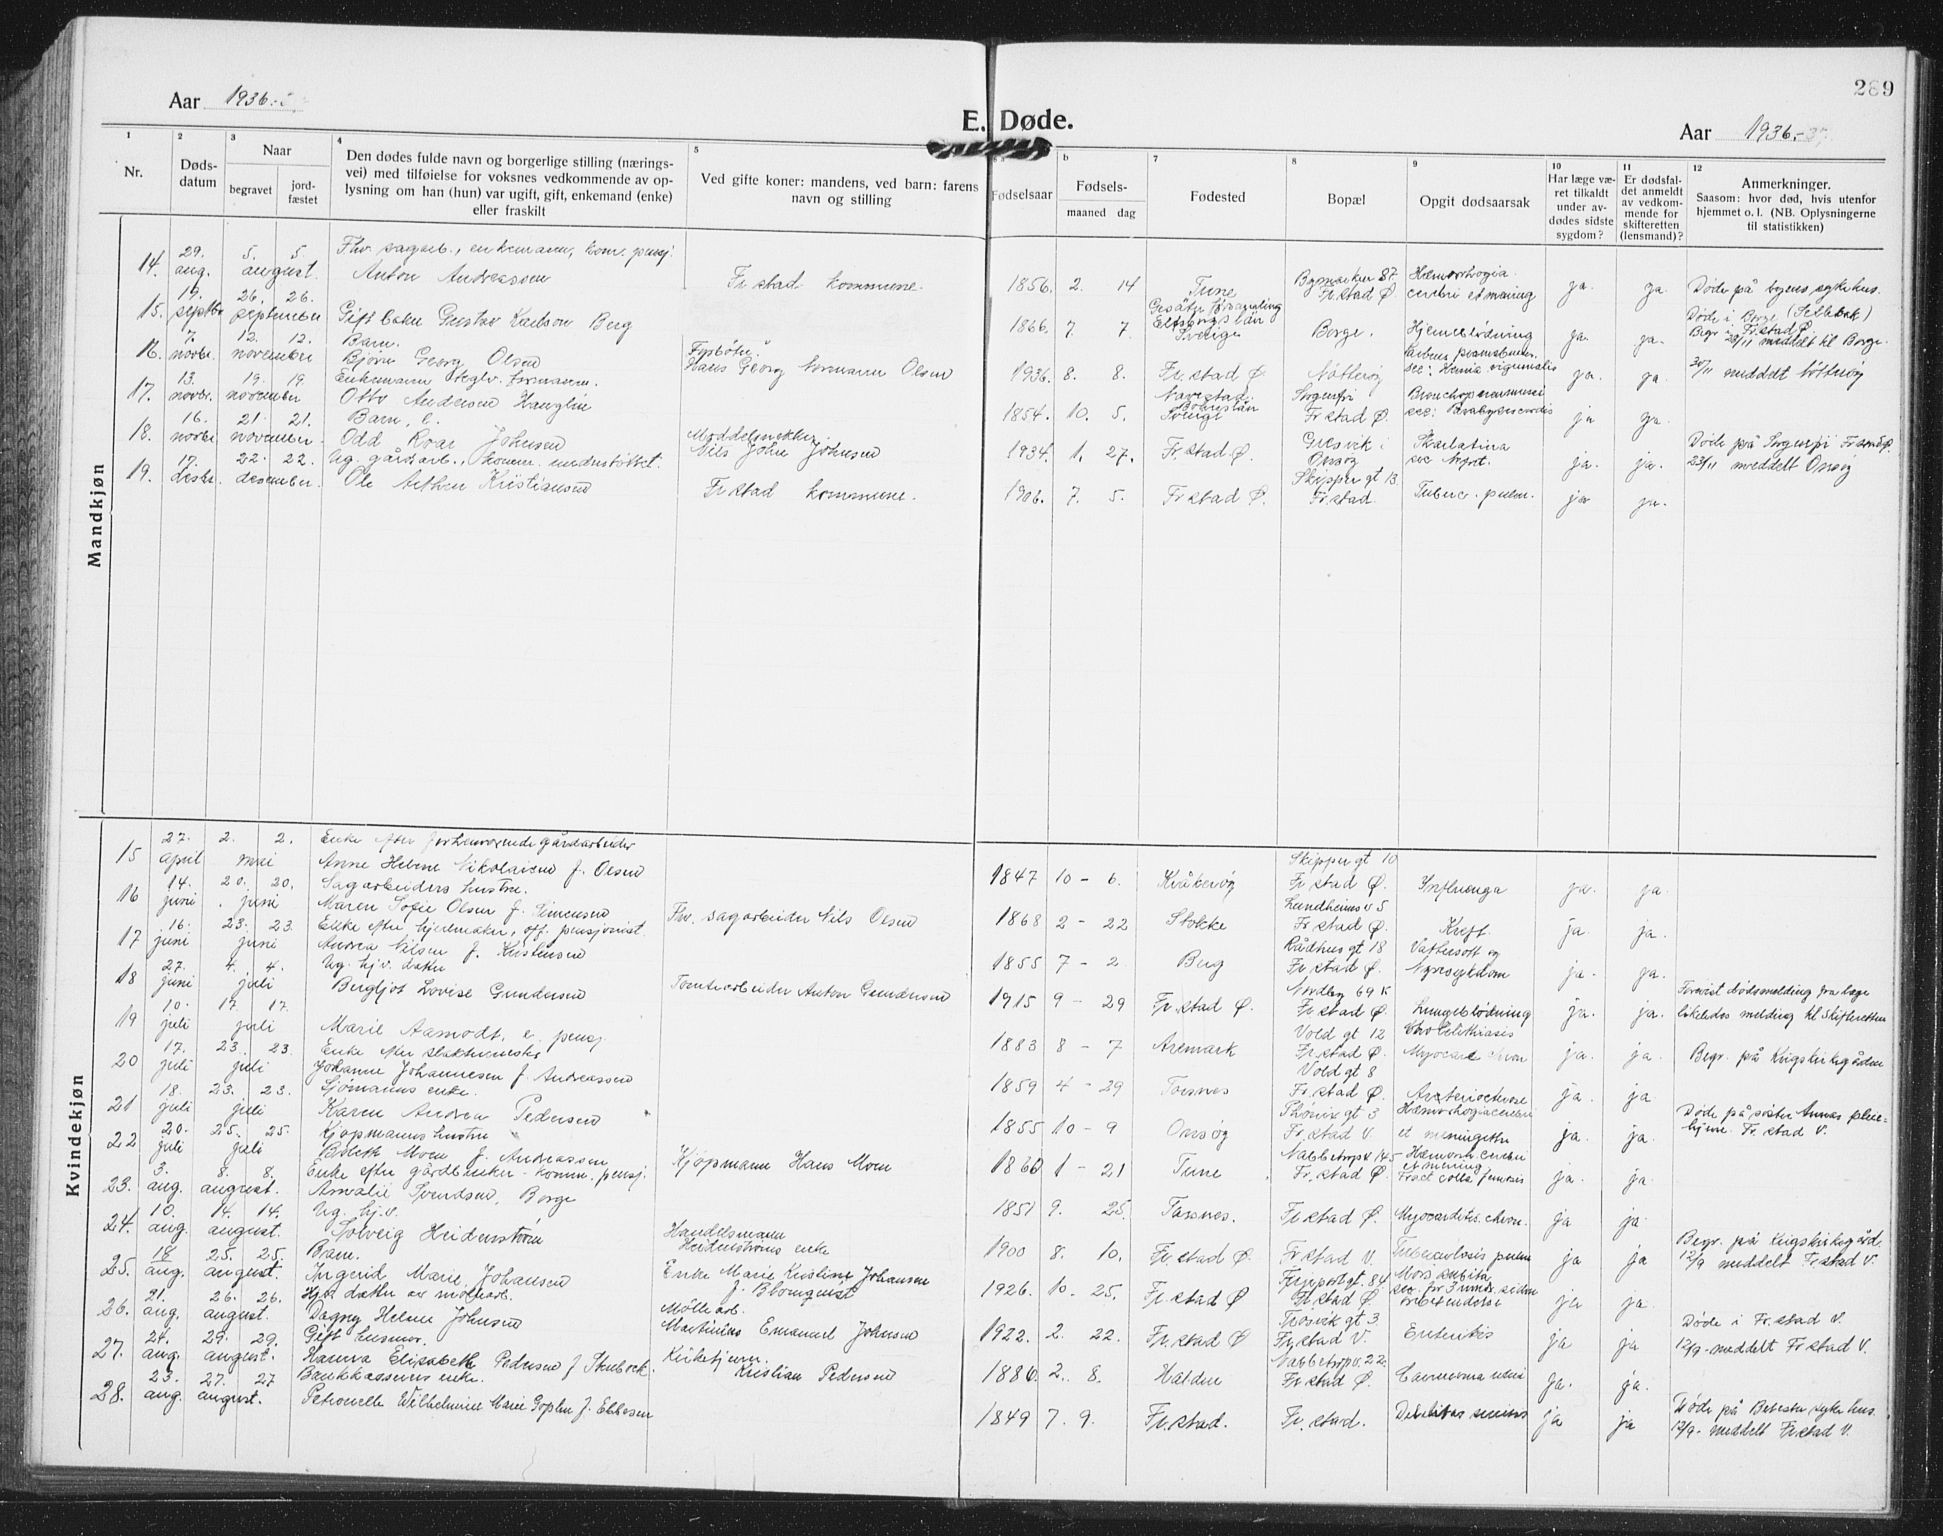 289
Aar 1936.-
E. Døde.
Aar 1936.-37.
1 2 3 4 5 6 a b 7 8 9 10 11 12
Nr.
Døds-
datum
Naar
begravet
jord-
fæstet
Den dødes fulde navn og borgerlige stilling (nærings-
vei) med tilføielse for voksnes vedkommende av op-
lysning om han (hun) var ugift, gift, enkemand (enke)
eller fraskilt
Ved gifte koner: mandens, ved barn: farens
navn og stilling
Fødselsaar
Fødsels-
maaned dag
Fødested
Bopæl
Opgit dødsaarsak
Har læge væ-
ret tilkaldt
under av-
dødes sidste
sygdom?
Er dødsfal-
det anmeldt
av vedkom-
mende for
skifteretten
(lensmand)?
Anmerkninger.
Saasom: hvor død, hvis utenfor
hjemmet o. l. (NB. Oplysningerne
til statistikken)
Mandkjøn
29. 5. 5. Fhv. sagarb., enkemann, kom. pensj.
14. aug. august. Anton Andreassen Fr.stad kommune. 1856. 2. 14 Tune Bymarken 87. Fr.stad Ø. Hæmorrhogia cerebri et mening ja. ja. Døde på byens sykehus.
19. 26. 26.
15. septbr september Gift baker Gustav Karlson Berg 1866. 7. 7. Sverige Borge. Hjerneblødning ja. ja. Døde i Borge (Selbak) Begr. i Fr.stad Ø.
7. 12. 12. Barn.
16. novbr. november Bjørn Georg Olsen Fyrbøter Hans Georg Normann Olsen 1936. 8. 8. Fr.stad Ø. Nøtterøy ja. ja. 30/11 meddelt Nøtterøy
13. 19. 19. Enkemann teglv. formann.
17. novbr. november Otto Andersen Hauglin 1854. 10. 5. Navestad: Sverige Sorgenfri Fr.stad Ø. ja ja.
16. 21. 21. Barn, e.
18. novbr november. Odd Roar Johnsen Møbelsnekker Nils John Johnsen 1934. 1. 27. Fr.stad Ø. Gresvik i Onsøy Skarlatina sec. Nefrit. ja. ja. Døde på Sorgenfri Fr.stad Ø. 23/11 meddelt Onsøy
17. 22. 22. Ug. gårdsarb., komm. understøttet.
19. desbr. desember. Ole Arthur Kristiansen Fr.stad kommune. 1906. 7. 5. Fr.stad Ø. Skipper gt 13 Fr.stad. Tuberc. pulm. ja ja.
Kvindekjøn
27. 2. 2. Enke efter forhenværende gårdarbeider
15 april mai Anne Helene Nikolaisen f. Olsen 1847 10 - 6. Kråkerøy Skipper gt 10 Fr.stad Ø. Influenza ja. ja.
14. 20. 20. Sagarbeiders hustru.
16 juni juni Maren Sofie Olsen f. Simensen Fhv. sagarbeider Nils Olsen 1868 2 - 22 Stokke Lundheims v 5 Fr.stad Ø. Kreft. ja. ja.
16. 23. 23. Enke efter hjulmaker, off. pensjonist.
17 juni juni Andrea Nilsen f. Kristensen 1855 7 - 2 Berg Rådhus gt 18 Fr.stad Ø. Vattersott og Nyresykdom ja. ja.
27. 4. 4. Ug. hj.v. datter
18 juni juli Bergljot Lovise Gundersen Tomtearbeider Anton Gundersen 1915 9 - 29 Fr.stad Ø. Nordby 69 K Fr.stad Ø. Lungeblødning ja. ja. Forevist dødsmelding fra læge likeledes melding til skifteretten
10. 17. 17.
19 juli juli Marie Aamodt, e. pensj. 1883 8 - 7 Aremark Vold gt 12 Fr.stad Ø. Cholelithiasis Myocard. chron ja. ja. Begr. på Krigskirkegården
17. 23. 23. Enke efter slaktermester
20 juli juli Johanne Johannesen f. Andreassen 1859 4 - 29 Torsnes Vold gt 8 Fr.stad Ø. Arteriosclerose ja. ja.
18. 23. 23. Sjømanns enke.
21 juli juli Karen Andrea Pedersen 1855 10 - 9 Onsøy Phønix gt 3 Fr.stad V. Hæmorrhogia cerebri et meningether ja. ja. Døde på søster Annas pleiehjem. Fr.stad V.
20. 25. 25. Kjøpmanns hustru
22 juli juli Bolette Moen f. Andreassen Kjøpmann Hans Moen 1860 1 - 21 Tune Nabbetorpv 145 Fr.stad Ø Hæmorrh. cerebri et mening Fract. colli femoris ja. ja.
3. 8. 8. Enke efter gårdbruker - komm. pensj.
23. aug. august. Amalie Svendsen, Borge 1851 9. 25. Torsnes. Fr.stad Ø. Myocarditis. chron. ja ja.
10. 14. 14. Ug. hj.v.
24. aug. august. Solveig Heidenstrøm Handelsmann Heidenstrøms enke 1900 8. 10. Fr.stad Ø Fr.stad V. Tuberculosis pulm ja ja Begr. på Krigskirkegård. 12/9 meddelt Fr.stad V.
18 25. 25. Barn.
25. aug. august. Ingerid Marie Johansen Enke Marie Kristine Johansen f. Blomquist 1926. 10. 25. Fr.stad Ø Fr.stad Ø. Mors subita ja ja.
21. 26. 26. Hjv. datter av møllearb.
26. aug. august. Dagny Helene Johnsen Møllearb. Martinius Emanuel Johnsen 1922. 2. 22. Fr.stad Ø Trosvik gt. 3 Fr.stad V. Enteritis ja ja Døde i Fr.stad V. 12/9 - meddelt Fr.stad V.
24. 29. 29. Gift husmor.
27. aug. august. Hanna Elisabeth Pedersen f Skubock. Kirketjener. Kristian Pedersen 1886. 2. 8. Halden Nabbetorpv. 22 Fr.stad Ø. Carcinoma uteri ja. ja.
23. 27. 27 Bankkasserers enke.
28. aug. august. Petronelle Wilhelmine Marie Gopler f. Ebbesen 1849 7. 9. Fr.stad. Fr.stad. Debilitas senilis ja ja Døde på Betesta sykehus. 12/9 - meddelt Fr.stad V.